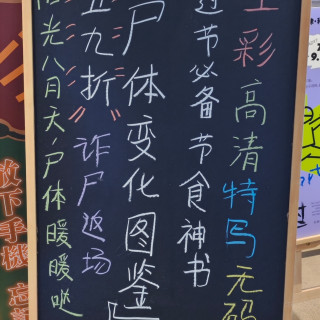 彩高清特写无码
过节必备 节食神书
尸体变化图鉴」
五九折"诈尸返场
阳光八月天,尸体暖暖哒
放下手機